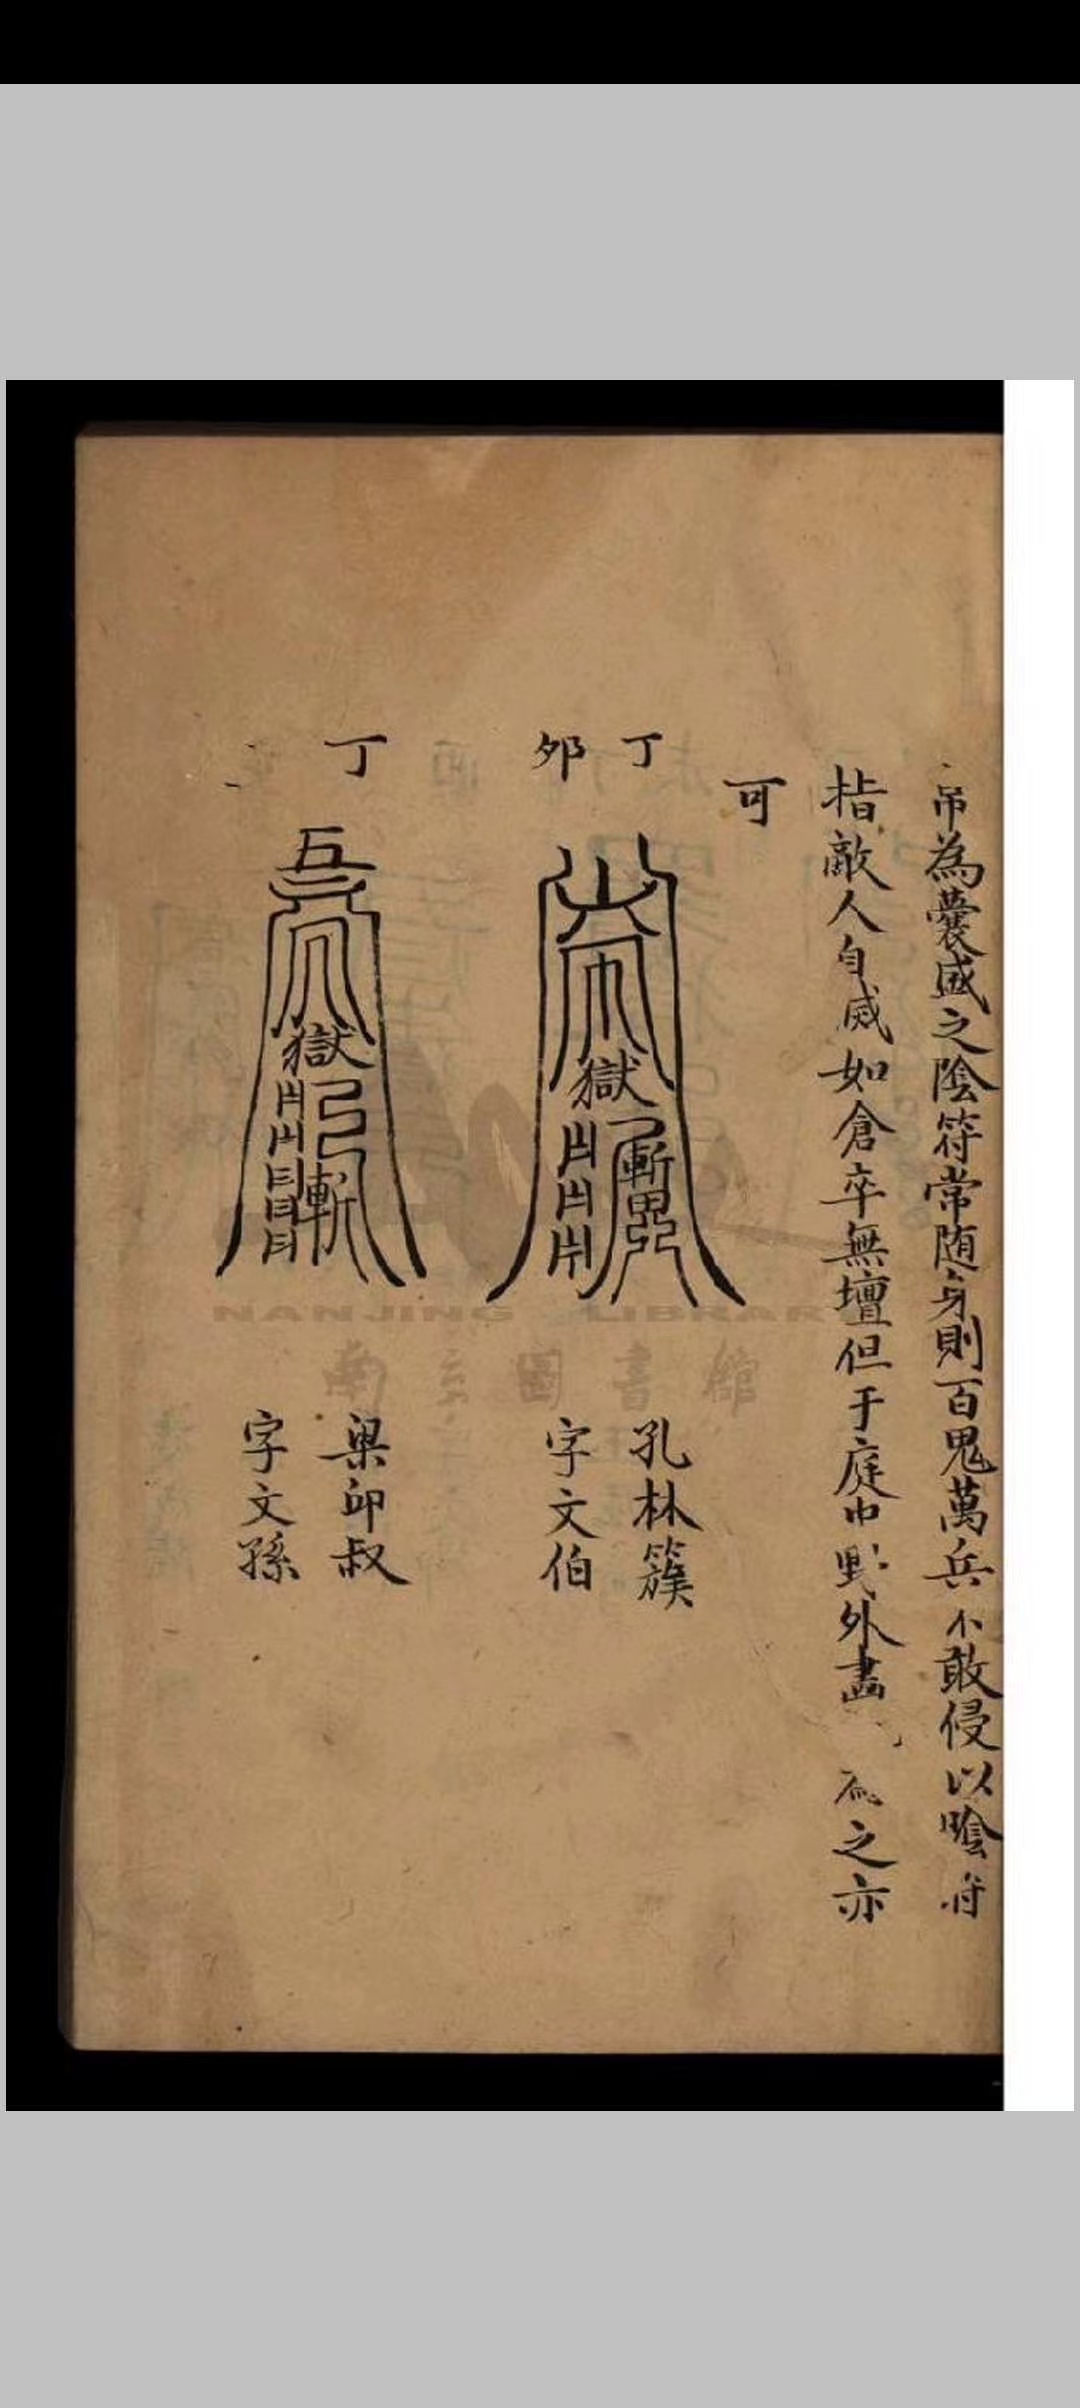 帛為囊盛之陰符常随身則百鬼萬兵不敢侵以陰符
指敵人自滅如倉卒無壇但于庭中野外畫 之亦
可
丁卯
獄
斬
孔林簇
字文伯
丁
獄
斬
梁邱叔
字文孫
NANJING LIBRAR
南京圖書館